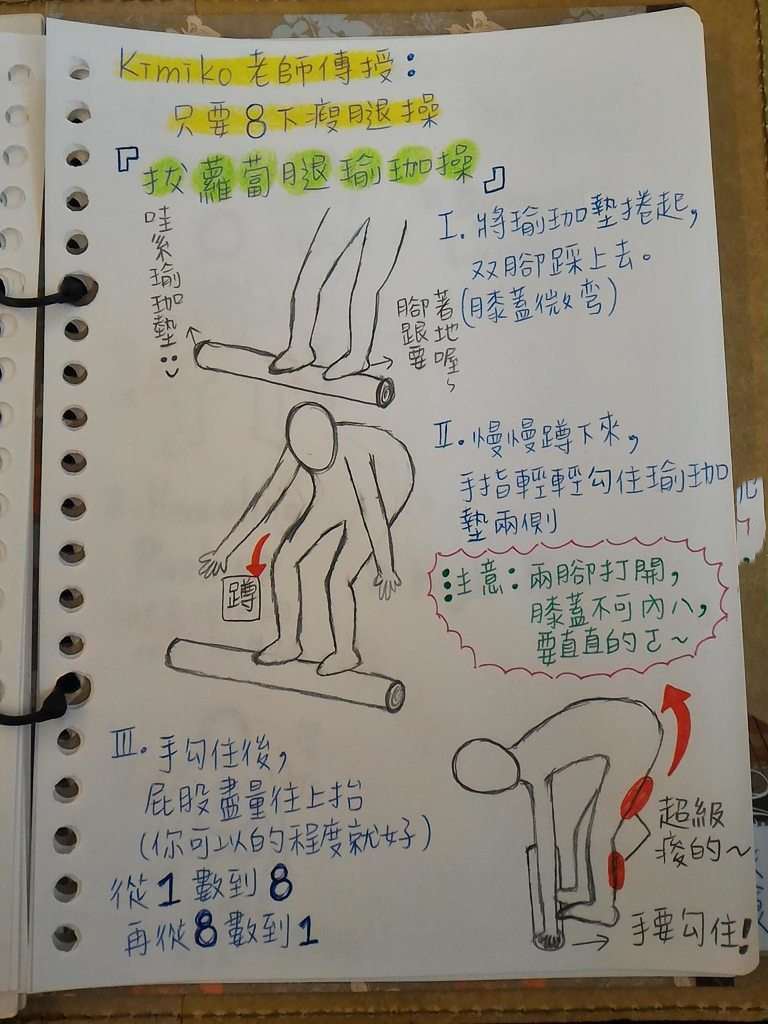 Kimiko老師傳授：
只要8下瘦腿操
『拔蘿蔔腿瑜珈操』
哇系瑜珈墊
腳跟要
著地喔~
I. 將瑜珈墊捲起，
双腳踩上去。
(膝蓋微彎)
II. 慢慢蹲下來，
手指輕輕勾住瑜珈
墊兩側
蹲
注意：兩腳打開，
膝蓋不可內八，
要直直的ㄛ~
III. 手勾住後，
屁股盡量往上抬
(你可以的程度就好)
從1數到8
再從8數到1
超級
痠的~
手要勾住！